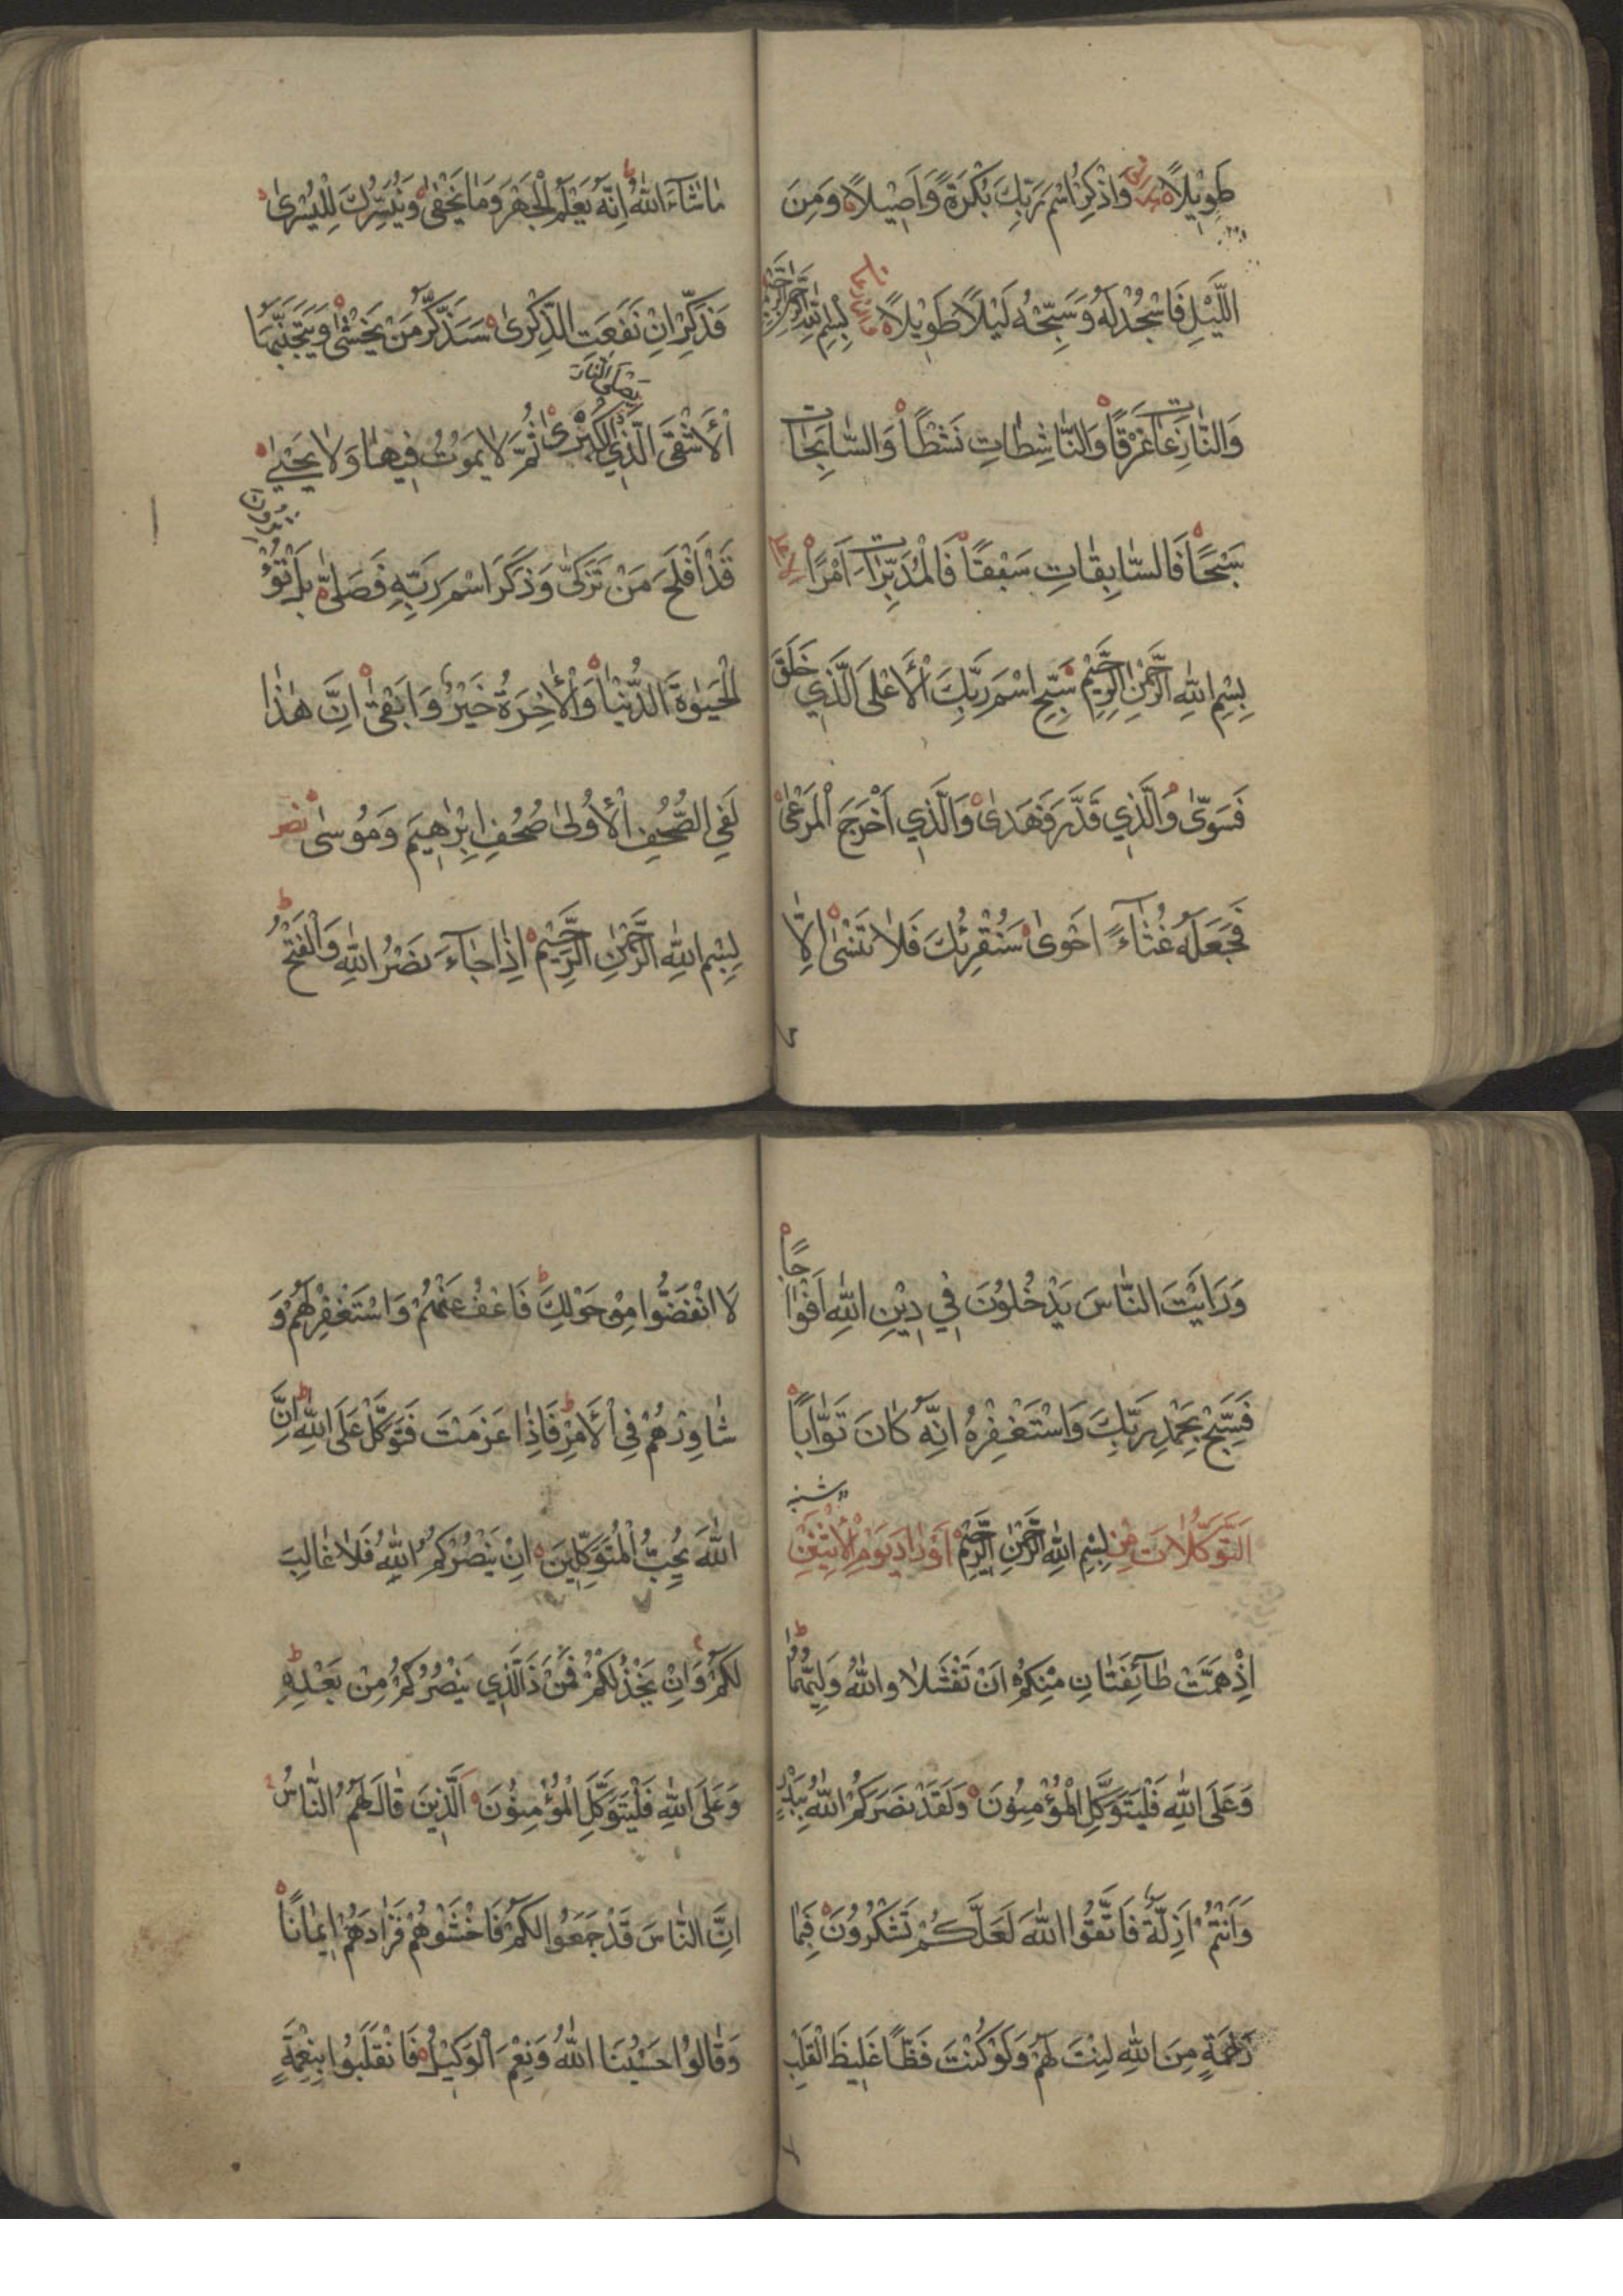 طَوِيْلاً وَاذْكُرِ اسْمَ رَبِّكَ بُكْرَةً وَاَصِيْلاً وَمِنَ
اللَّيْلِ فَاسْجُدْ لَهُ وَسَبِّحْهُ لَيْلاً طَوِيْلاً بِسْمِ اللّٰهِ الرَّحْمٰنِ الرَّحِيْمِ
وَالنَّازِعَاتِ غَرْقًا وَالنَّاشِطَاتِ نَشْطًا وَالسَّابِحَاتِ
سَبْحًا فَالسَّابِقَاتِ سَبْقًا فَالْمُدَبِّرَاتِ اَمْرًا
بِسْمِ اللّٰهِ الرَّحْمٰنِ الرَّحِيْمِ سَبِّحِ اسْمَ رَبِّكَ الْأَعْلَى الَّذِي خَلَقَ
فَسَوّٰى وَالَّذِي قَدَّرَ فَهَدٰى وَالَّذِي اَخْرَجَ الْمَرْعٰى
فَجَعَلَهُ غُثَاءً اَحْوٰى سَنُقْرِئُكَ فَلَا تَنْسٰى اِلَّا
مَا شَآءَ اللّٰهُ اِنَّهُ يَعْلَمُ الْجَهْرَ وَمَا يَخْفٰى وَنُيَسِّرُكَ لِلْيُسْرٰى
فَذَكِّرْ اِنْ نَفَعَتِ الذِّكْرٰى سَيَذَّكَّرُ مَنْ يَخْشٰى وَيَتَجَنَّبُهَا
الْأَشْقَى الَّذِي يَصْلَى النَّارَ الْكُبْرٰى ثُمَّ لَا يَمُوْتُ فِيهَا وَلَا يَحْيٰى
قَدْ اَفْلَحَ مَنْ تَزَكّٰى وَذَكَرَ اسْمَ رَبِّهِ فَصَلّٰى بَلْ تُؤْثِرُوْنَ
الْحَيٰوةَ الدُّنْيَا وَالْأٰخِرَةُ خَيْرٌ وَاَبْقٰى اِنَّ هٰذَا
لَفِي الصُّحُفِ الْأُولٰى صُحُفِ اِبْرٰهِيمَ وَمُوسٰى نصر
بِسْمِ اللّٰهِ الرَّحْمٰنِ الرَّحِيْمِ اِذَا جَآءَ نَصْرُ اللّٰهِ وَالْفَتْحُ
وَرَاَيْتَ النَّاسَ يَدْخُلُوْنَ فِي دِيْنِ اللّٰهِ اَفْوَاجًا
فَسَبِّحْ بِحَمْدِ رَبِّكَ وَاسْتَغْفِرْهُ اِنَّهُ كَانَ تَوَّابًا
اَلتَّوَكُّلَاتَ مِنْ بِسْمِ اللّٰهِ الرَّحْمٰنِ الرَّحِيْمِ اَوْرَادِ يَوْمِ الْأِثْنَيْنِ
اِذْ هَمَّتْ طَآئِفَتَانِ مِنْكُمْ اَنْ تَفْشَلَا وَاللّٰهُ وَلِيُّهُمَا
وَعَلَى اللّٰهِ فَلْيَتَوَكَّلِ الْمُؤْمِنُوْنَ وَلَقَدْ نَصَرَكُمُ اللّٰهُ بِبَدْرٍ
وَاَنْتُمْ اَذِلَّةٌ فَاتَّقُوا اللّٰهَ لَعَلَّكُمْ تَشْكُرُوْنَ فَبِمَا
رَحْمَةٍ مِنَ اللّٰهِ لِنْتَ لَهُمْ وَلَوْ كُنْتَ فَظًّا غَلِيظَ الْقَلْبِ
لَا انْفَضُّوا مِنْ حَوْلِكَ فَاعْفُ عَنْهُمْ وَاسْتَغْفِرْ لَهُمْ وَ
شَاوِرْهُمْ فِي الْأَمْرِ فَاِذَا عَزَمْتَ فَتَوَكَّلْ عَلَى اللّٰهِ اِنَّ
اللّٰهَ يُحِبُّ الْمُتَوَكِّلِينَ اِنْ يَنْصُرْكُمُ اللّٰهُ فَلَا غَالِبَ
لَكُمْ وَاِنْ يَخْذُلْكُمْ فَمَنْ ذَا الَّذِي يَنْصُرُكُمْ مِنْ بَعْدِهِ
وَعَلَى اللّٰهِ فَلْيَتَوَكَّلِ الْمُؤْمِنُوْنَ اَلَّذِينَ قَالَ لَهُمُ النَّاسُ
اِنَّ النَّاسَ قَدْ جَمَعُوا لَكُمْ فَاخْشَوْهُمْ فَزَادَهُمْ اِيمَانًا
وَقَالُوْا حَسْبُنَا اللّٰهُ وَنِعْمَ الْوَكِيْلُ فَانْقَلَبُوا بِنِعْمَةٍ